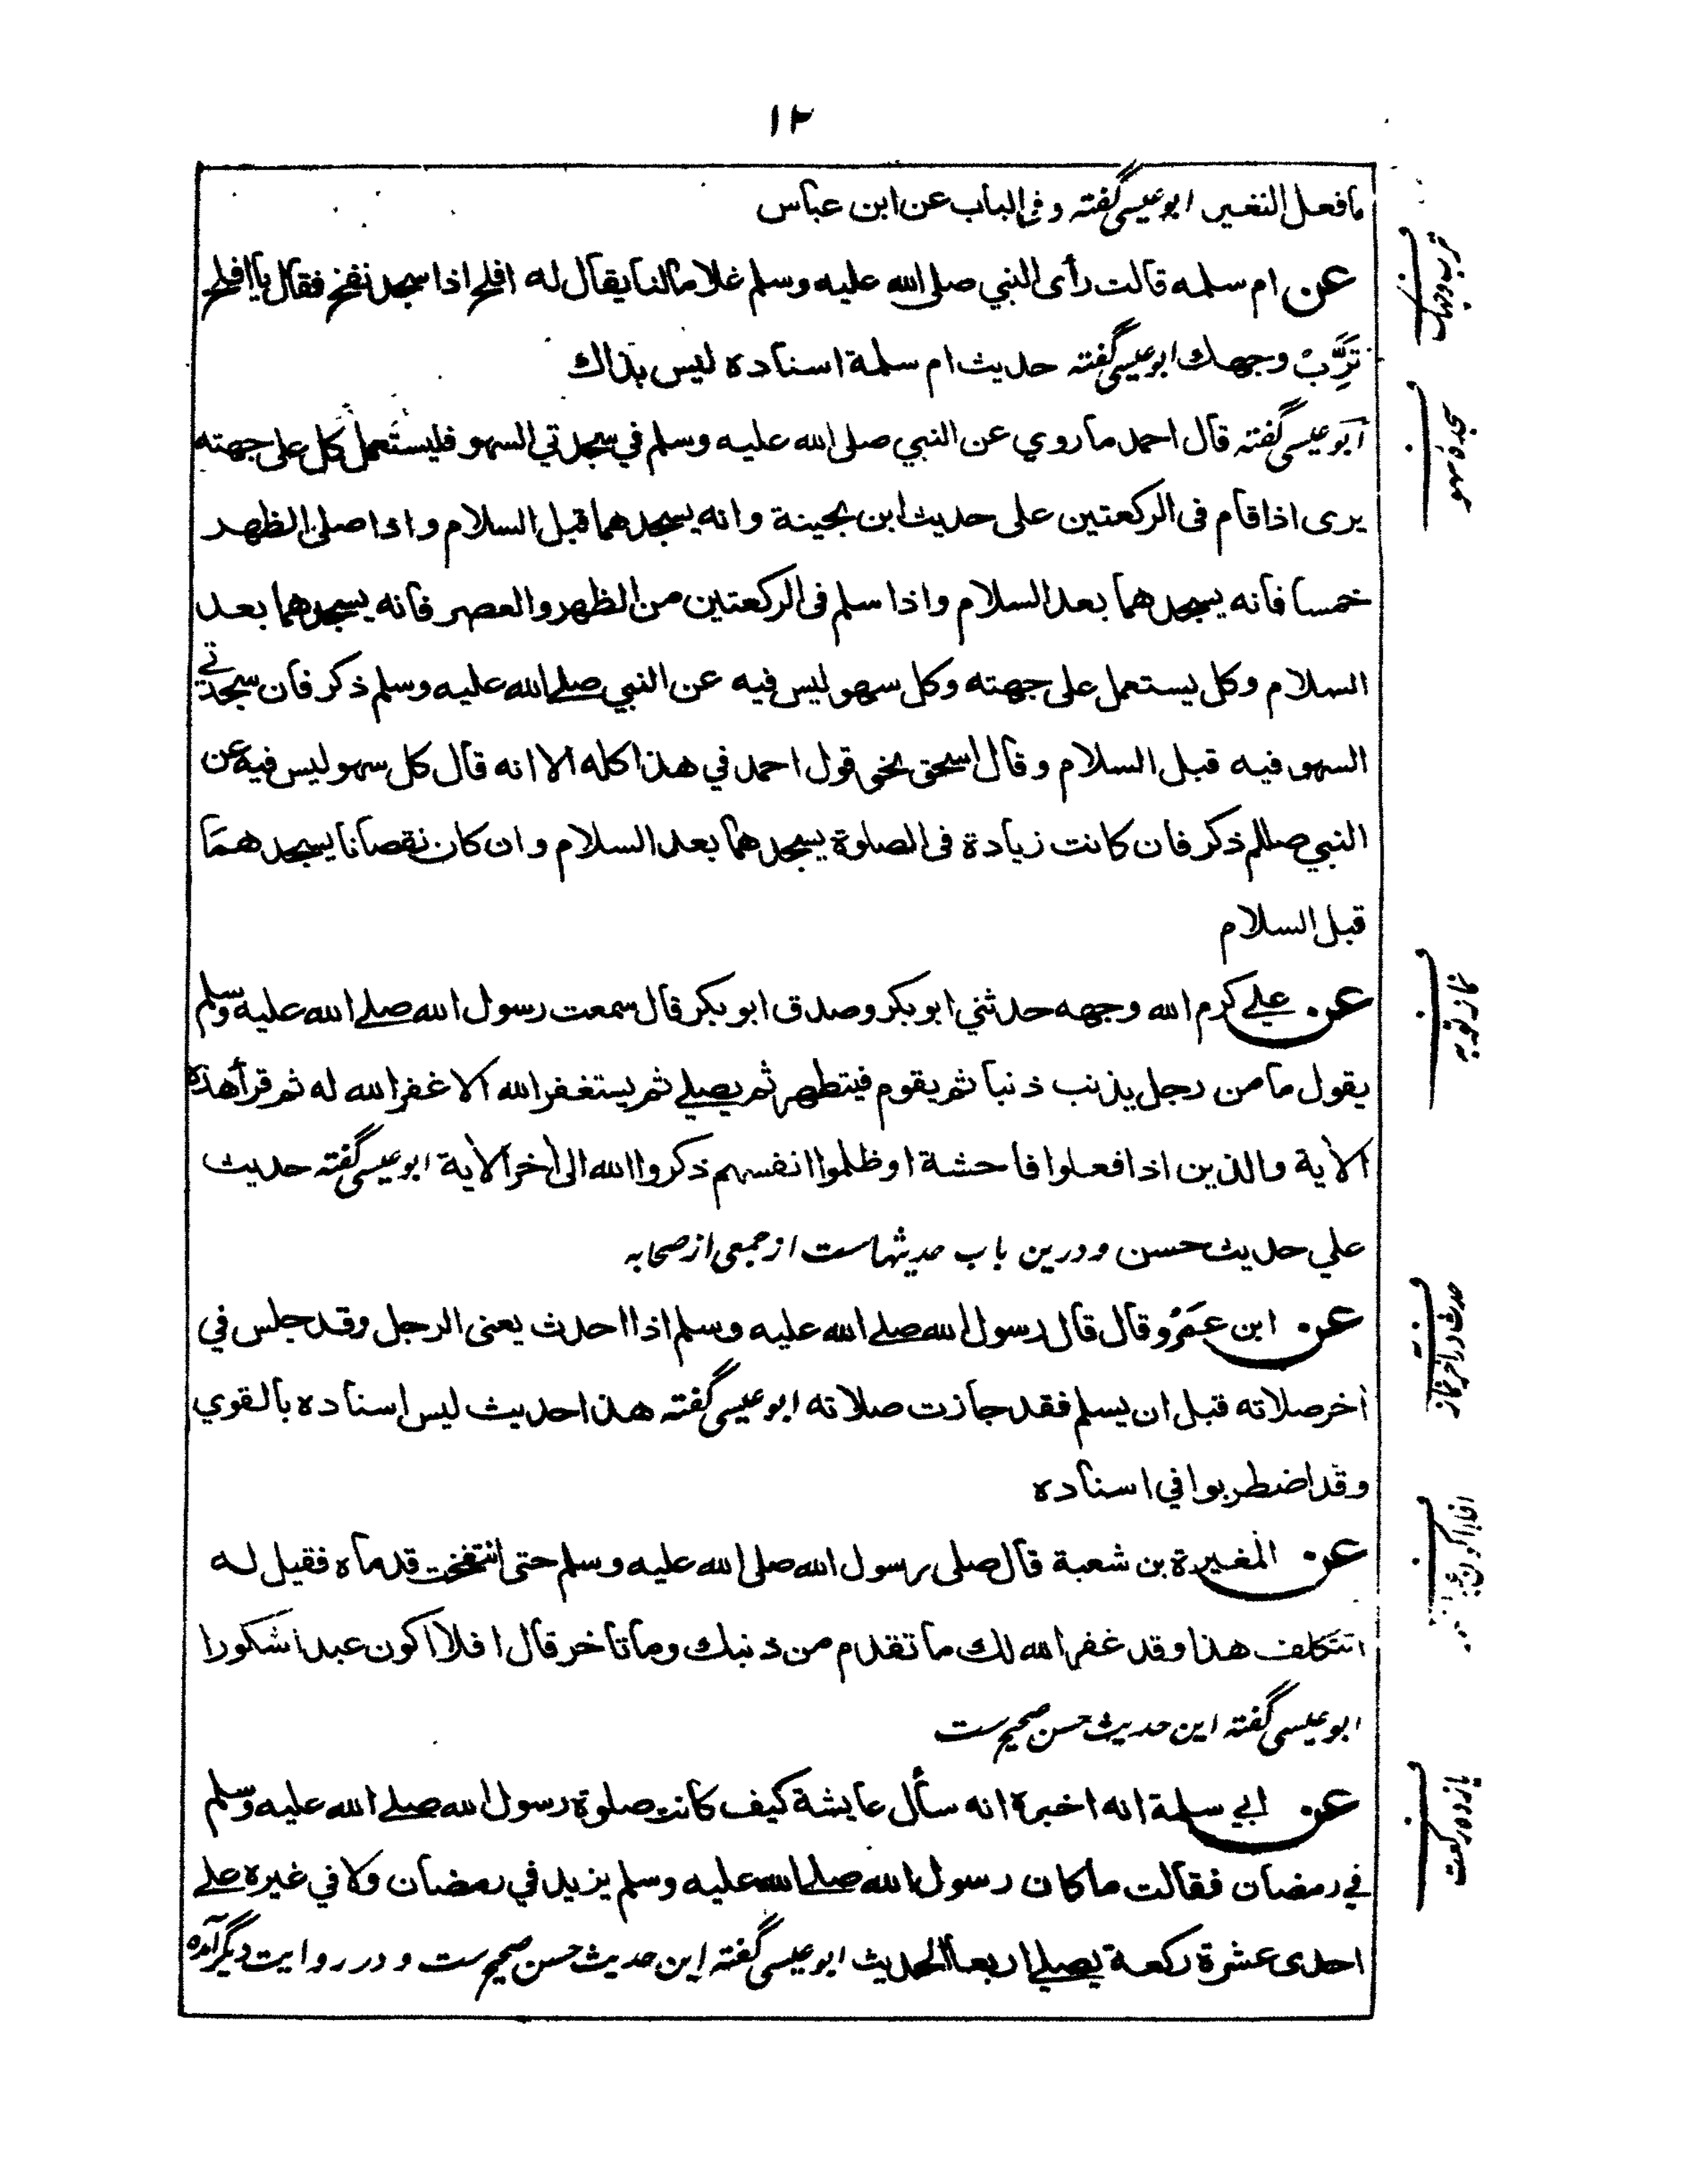 ١٢
ما فعل النغير ابو عيسى گفته و فى الباب عن ابن عباس
عن ام سلمه قالت رأى النبي صلى الله عليه وسلم غلاما لنا يقال له افلح اذا سجد نفخ فقال يا افلح
تَرِّبْ وجهك ابو عيسى گفته حديث ام سلمة اسناده ليس بذاك
ابو عيسى گفته قال احمد ما روي عن النبي صلى الله عليه وسلم في سجدتي السهو فليستعمل كل على جهته
يرى اذا قام فى الركعتين على حديث ابن بحينة وانه يسجدهما قبل السلام واذا صلى الظهر
خمسا فانه يسجدهما بعد السلام واذا سلم فى الركعتين من الظهر والعصر فانه يسجدهما بعد
السلام وكل يستعمل على جهته وكل سهو ليس فيه عن النبي صلے الله عليه وسلم ذكر فان سجدتي
السهو فيه قبل السلام وقال اسحق نحو قول احمد في هذا كله الا انه قال كل سهو ليس فيه عن
النبي صللم ذكر فان كانت زيادة فى الصلوة يسجدهما بعد السلام وان كان نقصانا يسجدهما
قبل السلام
عن علي كرم الله وجهه حدثني ابو بكر وصدق ابو بكر قال سمعت رسول الله صلے الله عليه وسلم
يقول ما من رجل يذنب ذنبا ثم يقوم فيتطهر ثم يصلے ثم يستغفر الله الا غفر الله له ثم قرأ هذه
الأية والذين اذا فعلوا فاحشة او ظلموا انفسهم ذكروا الله الى أخر الأية ابو عيسى گفته حديث
علي حديث حسن ودرين باب حديثهاست از جمعى از صحابه
عن ابن عَمْرٍو قال قال رسول الله صلے الله عليه وسلم اذا احدث يعنى الرجل وقد جلس في
أخر صلاته قبل ان يسلم فقد جازت صلاته ابو عيسى گفته هذا حديث ليس اسناده بالقوي
وقد اضطربوا في اسناده
عن المغيرة بن شعبة قال صلى رسول الله صلى الله عليه وسلم حتى انتفخت قدماه فقيل له
اتتكلف هذا وقد غفر الله لك ما تقدم من ذنبك وما تاخر قال افلا اكون عبدا شكورا
ابو عيسى گفته اين حديث حسن صحيح ست
عن ابي سلمة انه اخبره انه سأل عايشة كيف كانت صلوة رسول الله صلے الله عليه وسلم
في رمضان فقالت ما كان رسول الله صلے الله عليه وسلم يزيد في رمضان ولا في غيره علے
احدى عشرة ركعة يصلے اربعا الحديث ابو عيسى گفته اين حديث حسن صحيح ست و در روايت ديگر آمده
تربه وجهك
سجده سهو
نماز توبه
حدث در آخر نماز
يازده ركعت